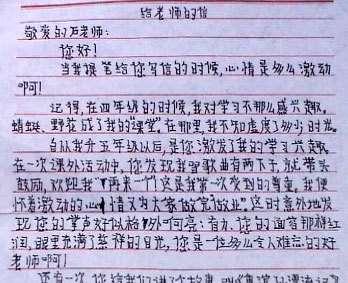 给老师的信
敬爱的石老师:
您好!
当我提笔给您写信的时候,心情是多么激动
啊!
记得,在四年级的时候,我对学习不那么感兴趣。
蜻蜓、野花成了我的“课堂”。在那里,我不知虚度了多少时光。
自从我升五年级以后,是您激发了我的学习兴趣
在一次课外活动中,您发现我唱歌曲有两下子,就带头
鼓励,欢迎我“再来一个”这是我第一次受到的尊重,我便
怀着激动的心情又为大家做完做业”这时意外地发
现您的掌声好似格外向亮;有力,您的面容那样红
润,眼里充满了慈祥的目光,您是一位多么令人难忘的好
老师啊!
还有一次,您给我们讲了个故事,叫